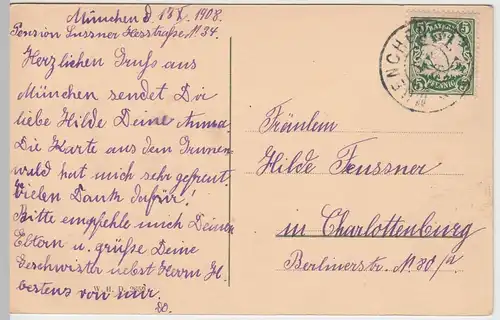 München d. 18 X. 1908.
Pension Sussner Hesstraße N 34.
Herzlichen Gruss aus
München sendet Dir
liebe Hilde Deine Anna.
Die Karte aus dem Grune-
wald hat mich sehr gefreut.
Vielen Dank dafür!
Bitte empfehle mich Deinen
Eltern u. grüße Deine
Geschwister nebst Herrn H.
bestens von mir.
W. H. D.
BAYERN
5 5
PFENNIG
ENCH
Fräulein
Hilde Feussner
in Charlottenburg
Berlinerstr. N. 80/a